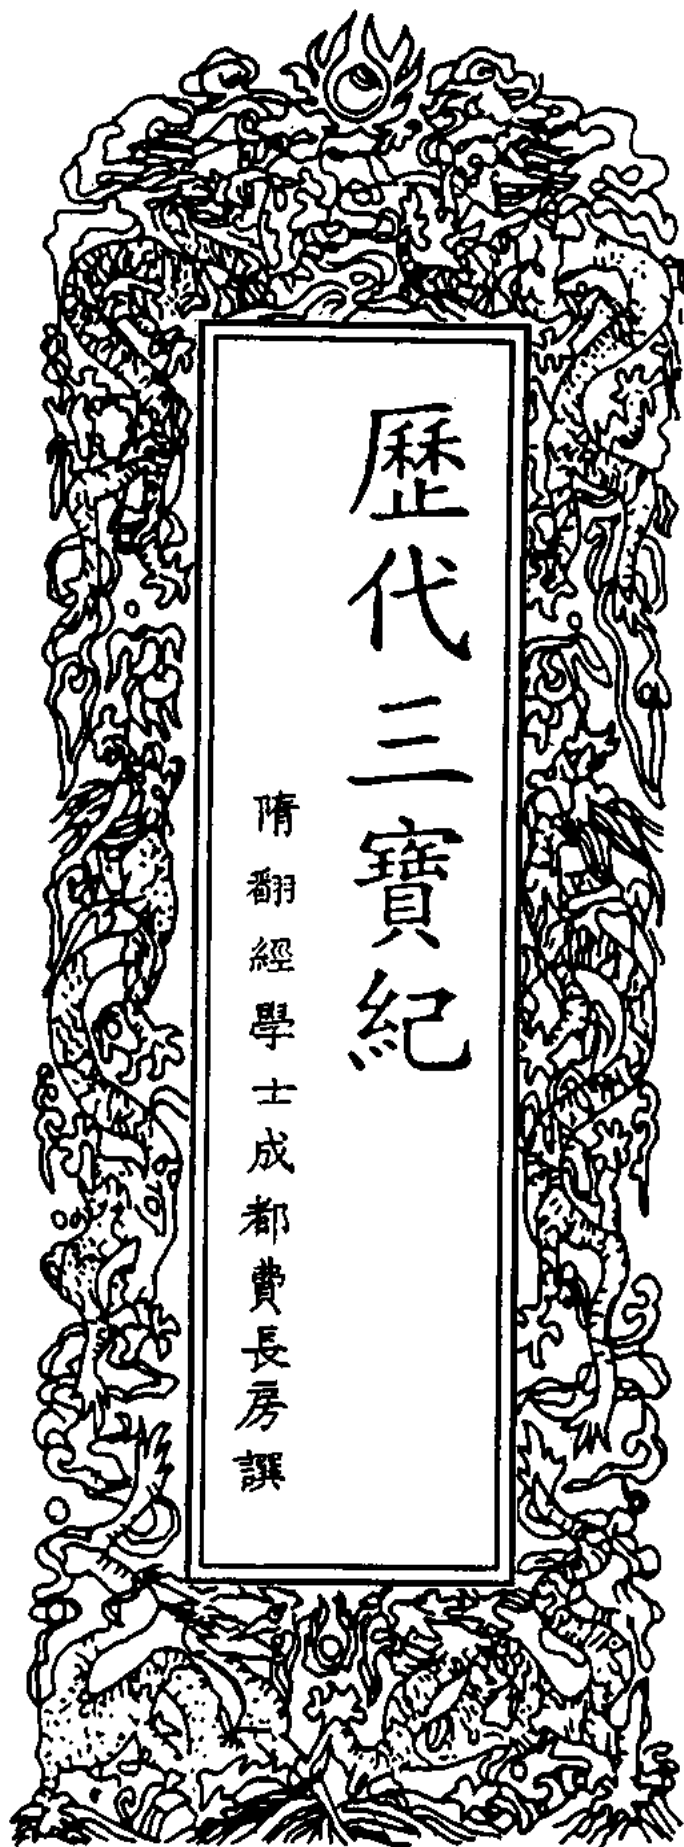 歷代三寶紀
隋翻經學士成都費長房撰